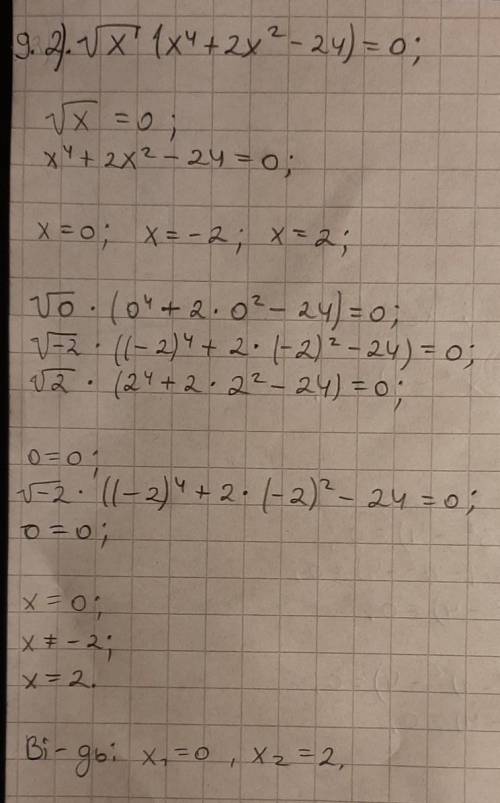 9.2). √x (x⁴ + 2x² - 24) = 0;
√x = 0;
x⁴ + 2x² - 24 = 0;
x = 0; x = -2; x = 2;
√0 · (0⁴ + 2 · 0² - 24) = 0;
√-2 · ((-2)⁴ + 2 · (-2)² - 24) = 0;
√2 · (2⁴ + 2 · 2² - 24) = 0;
0 = 0;
√-2 · ((-2)⁴ + 2 · (-2)² - 24 = 0;
0 = 0;
x = 0;
x ≠ -2;
x = 2.
Ві-дь: x₁ = 0, x₂ = 2,